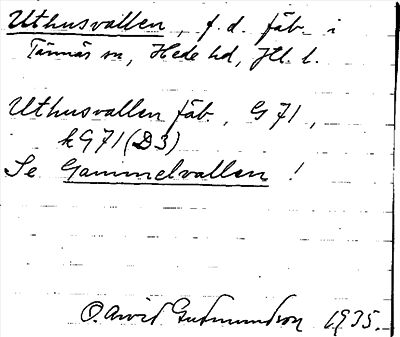 Uthusvallen, f.d. fäb. i
Tännäs sn, Hede hd, Jtl. l.
Uthusvallen fäb., G 71,
kG71 (D3)
Se Gammelvallen !
O. Arvid Gudmundson 1935.